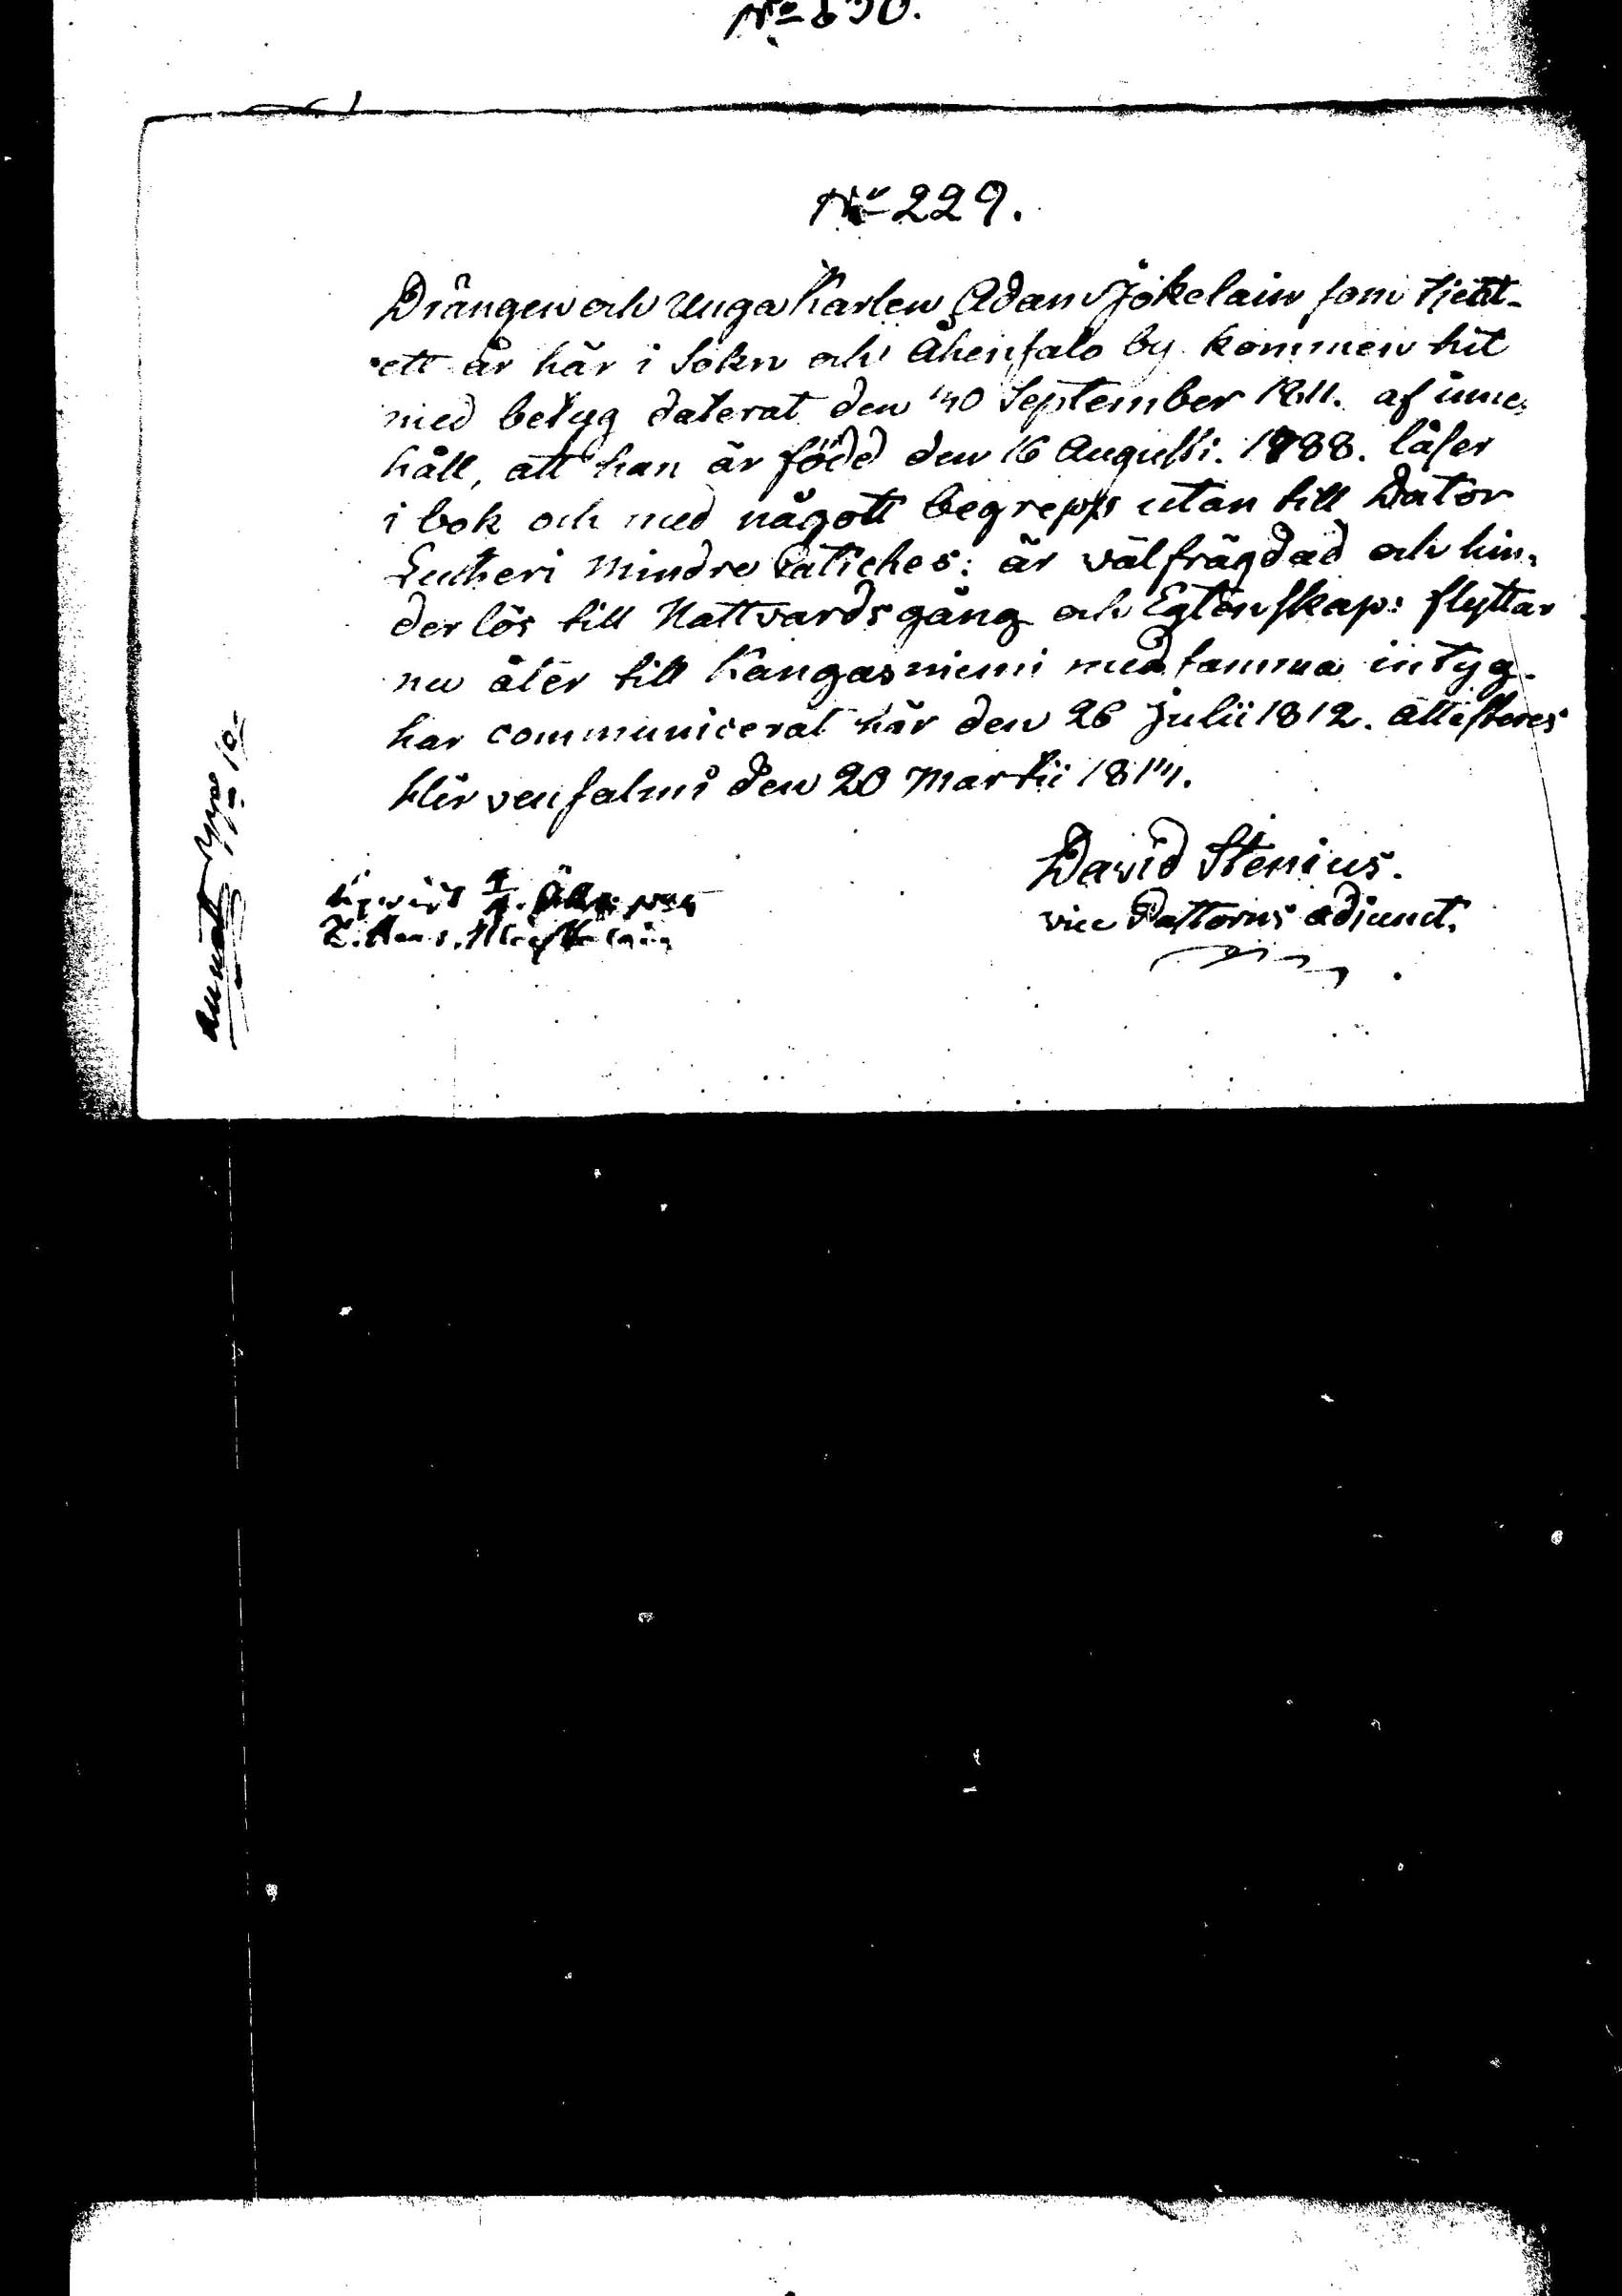 No 229.
Drängen och Unga Karlen Adam Jokelain som tjent
ett år här i Sokn och Ahensalo by kommen hit
med betyg daterat den 30 September 1811. af inne,
håll, att han är född den 16 Augusti. 1788. läser
i bok och med någott begrepp utan till Dator
Lutheri Mindre Catiches: är välfrägdad och hin,
derlös till Nattvardsgång och Egtenskap: flyttar
nu åter till Kangasniemi med samma intyg.
har communicerat här den 26 Julii 1812. attesteres
Hirvensalmi den 20 Martii 1814.
David Stenius.
vice Pastorns adjunct.